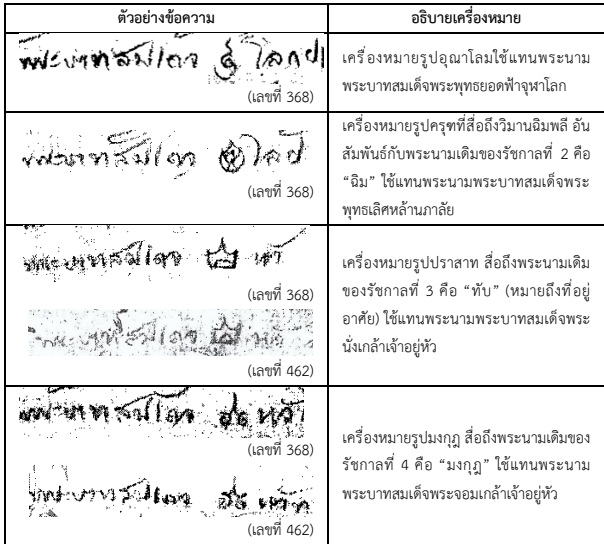 ตัวอย่างข้อความ
อธิบายเครื่องหมาย
พระบาทสมเดจ
(เลขที่ 368)
เครื่องหมายรูปอุณาโลมใช้แทนพระนาม
พระบาทสมเด็จพระพุทธยอดฟ้าจุฬาโลก
(เลขที่ 368)
เครื่องหมายรูปครุฑที่สื่อถึงวิมานฉิมพลี อัน
สัมพันธ์กับพระนามเดิมของรัชกาลที่ 2 คือ
“ฉิม” ใช้แทนพระนามพระบาทสมเด็จพระ
พุทธเลิศหล้านภาลัย
(เลขที่ 368)
(เลขที่ 462)
เครื่องหมายรูปปราสาท สื่อถึงพระนามเดิม
ของรัชกาลที่ 3 คือ “ทับ” (หมายถึงที่อยู่
อาศัย) ใช้แทนพระนามพระบาทสมเด็จพระ
นั่งเกล้าเจ้าอยู่หัว
(เลขที่ 368)
(เลขที่ 462)
เครื่องหมายรูปมงกุฎ สื่อถึงพระนามเดิมของ
รัชกาลที่ 4 คือ “มงกุฎ” ใช้แทนพระนาม
พระบาทสมเด็จพระจอมเกล้าเจ้าอยู่หัว